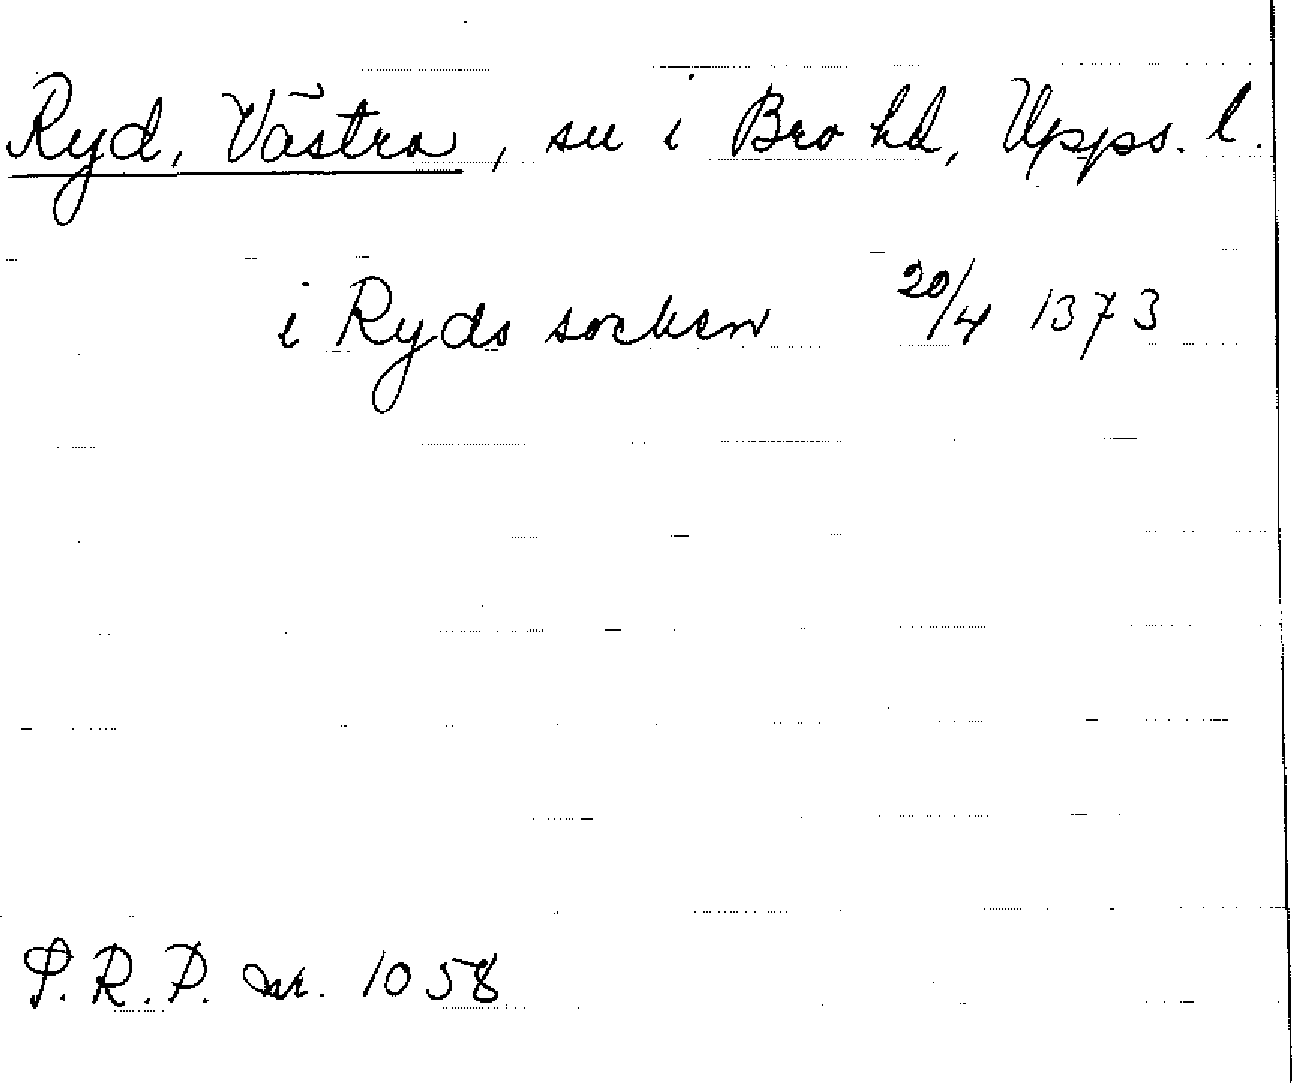 Ryd, Västra, sn i Bro hd, Upps. l.
i Ryds socken 20/4 1373
P.R.P. nr. 1058